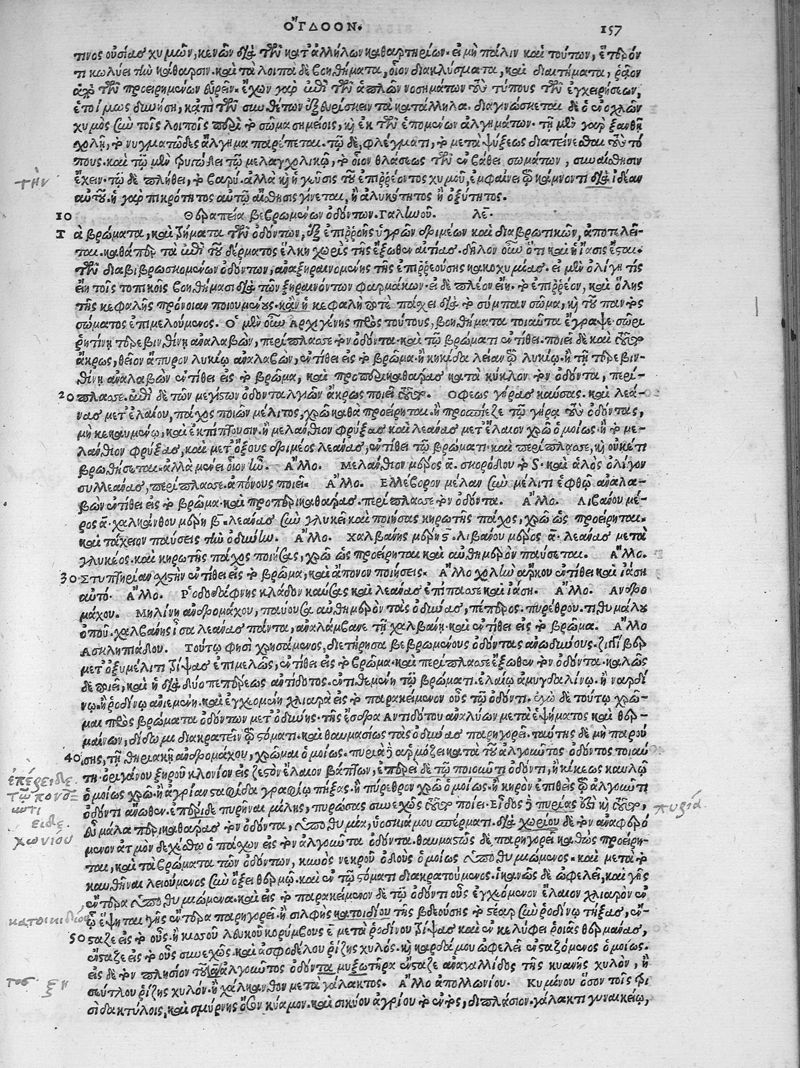 ὌΓΔΟΟΝ. 157
τινος οὐσίας χυμῶν, κενῶν διὰ τῶν κατ᾽ ἀλλήλων καθαρτηρίων. εἰ μὴ πάλιν καὶ τούτων, ἕτερόν
τι κωλύει τὴν κάθαρσιν. καὶ τὰ λοιπὰ δὲ βοηθήματα, οἷον διακλύσματα, καὶ διαιτήματα, ῥᾷον
ἀπὸ τῶν προειρημένων εὑρεῖν. ἔχων γὰρ ἐπὶ τῶν ἁπλῶν νοσημάτων τοὺς τύπους τῶν ἐγχειρήσεων,
ἑτοίμως δυνήσῃ, κἀπὶ τῶν συνθέτων ἐξευρίσκειν τὰ κατάλληλα. διαγνώσκεται δὲ ὁ ἐνοχλῶν
χυμὸς σὺν τοῖς λοιποῖς περὶ τὸ σῶμα σημείοις, καὶ ἐκ τῶν ἑπομένων ἀλγημάτων. τῇ μὲν γὰρ ξανθῇ
χολῇ, τὸ νυγματῶδες ἄλγημα παρέπεται. τῷ δὲ, φλέγματι, τὸ μετὰ ψύξεως διατείνεσθαι τοὺς τό-
πους. καὶ τῷ μὲν τῷ μελαγχολικῷ, τὸ οἷον θλάσεως τῶν ἐν βάθει σωμάτων, συναίσθησιν
ἔχειν. τῷ δὲ πλήθει, τὸ βαρύ. ἀλλὰ καὶ ἡ γεῦσις τοῦ ἐπιρρέοντος χυμοῦ, ἐμφαίνει τῷ κάμνοντι διὰ ἰδέαν
τὴν
αὐτοῦ. ἢ γὰρ πικρότητος αὐτῷ αἴσθησις γίνεται, ἢ ἁλυκότητος ἢ ὀξύτητος.
10 Θεραπεία βεβρωμένων ὀδόντων. Γαληνοῦ. λε.
Τὰ βρώματα, καὶ τρήματα τῶν ὀδόντων, ἐξ ἐπιρροῆς ὑγρῶν δριμέων καὶ διαβρωτικῶν, ἀποτελεῖ-
ται. καθάπερ τὰ ἐπὶ τοῦ δέρματος ἕλκη χωρὶς τῆς ἔξωθεν αἰτίας. δῆλον οὖν ὅτι καὶ ἡ ἴασις ἔσται.
τῶν διαβιβρωσκομένων ὀδόντων, ἀναξηραινομένης τῆς ἐπιρρεούσης κακοχυμίας. εἰ μὲν ὀλίγη τις
εἴη τοῖς τοπικοῖς βοηθήμασι διὰ τῶν ξηραινόντων φαρμάκων. εἰ δὲ πλέον εἴη τὸ ἐπιρρέον, καὶ ὅλης
τῆς κεφαλῆς πρόνοιαν ποιουμένους. κἂν ἡ κεφαλή ποτε πάσχει διὰ τὸ σύμπαν σῶμα, καὶ τοῦ παντὸς
σώματος ἐπιμελούμενος. Ὁ μὲν οὖν Ἀρχιγένης πρὸς τούτους, βοηθήματα τοιαῦτα ἔγραψε. σῶρι
ῥητίνῃ τερεβινθίνῃ ἀναλαβὼν, περίπλασσε τὸν ὀδόντα. καὶ τῷ βρώματι ἐντίθει. ποιεῖ δὲ καὶ τοῦτο
ἄκρως, θεῖον ἄπυρον λυκίῳ ἀναλαβὼν, ἐντίθει εἰς τὸ βρῶμα. ἢ κηκίδα λείαν σὺν λυκίῳ. ἢ τῇ τερεβιν-
θίνῃ ἀναλαβὼν ἐντίθει εἰς τὸ βρῶμα, καὶ προπερικαθάρας κατὰ κύκλον τὸν ὀδόντα, περί-
20 πλασσε. ἐπὶ δὲ τῶν μεγίστων ὀδονταλγιῶν ἄκρως ποιεῖ τοῦτο. Ὄφεως γῆρας καύσας. καὶ λεά-
νας μετ᾽ ἐλαίου, πάχος ποιῶν μέλιτος, χρῶ καθὰ προείρηται. ἢ προστήξε τῷ γήρᾳ τοὺς ὀδόντας,
μὴ κεκαυμένῳ, καὶ ἐκπίπτουσιν. ἢ μελάνθιον φρύξας καὶ λεάνας μετ᾽ ἐλαίου χρῶ ὁμοίως. ἢ τὸ με-
λάνθιον φρύξας, καὶ μετ᾽ ὄξους δριμέος λεάνας, ἐντίθει τῷ βρώματι. καὶ περίπλασσε, καὶ οὐκέτι
βρωθήσεται. ἀλλὰ μένει οἷον ἦν. Ἄλλο. Μελανθίου μέρος α. σκορόδου τὸ 𐅵. καὶ ἁλὸς ὀλίγον
συλλεάνας, περίπλασσε. ἀπόνους ποιεῖ. Ἄλλο. Ἑλλέβορον μέλαν σὺν μέλιτι ἑφθῷ ἀναλα-
βὼν ἐντίθει εἰς τὸ βρῶμα. καὶ προπερικαθάρας. περίπλασσε τὸν ὀδόντα. Ἄλλο. Λιβάνου μέ-
ρος α. χαλκάνθου μέρη β. λεάνας σὺν γλυκεῖ. καὶ ποιήσας κηρωτῆς πάχος, χρῶ ὡς προείρηται.
καὶ τάχειον παύσεις τὴν ὀδύνην. Ἄλλο. Χαλβάνης μέρη ς. λιβάνου μέρος α. λεάνας μετὰ
γλυκέος. καὶ κηρωτῆς πάχος ποιήσας, χρῶ ὡς προείρηται καὶ αὐθημερὸν παύσεται. Ἄλλο.
30 Στυπτηρίαν σχιστὴν ἐντίθει εἰς τὸ βρῶμα, καὶ ἄπονον ποιήσεις. Ἄλλο χολὴν ἄρκου ἐντίθει καὶ ἰάσῃ
αὐτό. Ἄλλο. Ῥοδοδάφνης κλάδον καύσας καὶ λεάνας ἐπίπασσε καὶ ἰάσῃ. Ἄλλο. Ἀνδρο
μάχου. Μηλίνη ἀνδρομάχου, παύουσα αὐθημερὸν τὰς ὀδύνας, πέπερος. πυρέθρου. τιθυμάλου
ὀποῦ. χαλβάνης ἴσα λεάνας πάντα, ἀναλάμβανε τῇ χαλβάνῃ. καὶ ἐντίθει εἰς τὸ βρῶμα. Ἄλλο
Ἀσκληπιάδου. Τούτῳ φησὶ χρησάμενος, διετήρησα βεβρωμένους ὀδόντας ἀνωδύνους. ζιγγίβερ
μετ᾽ ὀξυμέλιτι τρίψας ἐπιμελῶς, ἐντίθει εἰς τὸ βρῶμα. καὶ περίπλασσε ἔξωθεν τὸν ὀδόντα. καλῶς
δὲ ποιεῖ, καὶ ἡ διὰ δύο πεπέρεως ἀντίδοτος. ἐντιθεμένη τῷ βρώματι. ἐλαίῳ ἀμυγδαλίνῳ. ἢ ναρδί-
νῳ. ἢ ῥοδίνῳ ἀνιεμένη. καὶ ἐγχεομένη χλιαρὰ εἰς τὸ παρακείμενον οὖς τῷ ὀδόντι. ἐγὼ δὲ τούτῳ χρῶ-
μαι πρὸς βρώματα ὀδόντων μετ᾽ ὀδύνης. τῆς ἔσδρα Ἀντιδότου ἀναλύων μετὰ ἑψήματος καὶ θερ-
μαίνων, δίδωμι διακρατεῖν τῷ στόματι. καὶ θαυμασίως τὰς ὀδύνας παρηγορεῖ. ταύτης δὲ μὴ παρού
40 σης, τῇ θηριακῇ ἀνδρομάχου, χρῶμαι ὁμοίως. πυρία ἁρμόζει κατὰ τοῦ ἀλγοῦντος ὀδόντος τοιαύ
τη. ὀριγάνου ξηροῦ κλονίον εἰς ζεστὸν ἔλαιον βάπτων, ἐπέρειδε τῷ πονοῦντι ὀδόντι, ἢ κίκεως καυλῷ
ἐπέρειδε
τῷ πονοῦ
ντι
εἶδε
χωνίου
ὁμοίως χρῶ. ἢ ἀγρίαν σταφίδα γραφίῳ πήξας. ἢ πύρεθρον χρῶ ὁμοίως. ἢ κηρὸν ἐπιθεὶς τῷ ἀλγοῦντι
ὀδόντι ἄνωθεν. ἐπέρειδε πυρῆνα μήλης, πυρώσας συνεχῶς τοῦτο ποιεῖ. Εἶδος πυρίας ἐστὶ καὶ τοῦτο,
πυρία
εὖ μάλα περικαθάρας τὸν ὀδόντα, ὑποθυμία, ὑοσκυάμου σπέρματι. διὰ χωρίου δὲ τὸν ἀναφερό
μενον ἀτμὸν δεχέσθω ὁ πάσχων εἰς τὸν ἀλγοῦντα ὀδόντα. θαυμαστῶς δὲ παρηγορεῖ καθὼς προείρη-
ται, καὶ τὰ βρώματα τῶν ὀδόντων, κυνὸς νεκροῦ ὀδοὺς ὁμοίως ὑποθυμιώμενος. καὶ μετὰ τὸ
καυθῆναι λειούμενος σὺν ὄξει θερμῷ. καὶ ἐν τῷ στόματι διακρατούμενος. ἱκανῶς δὲ ὠφελεῖ, καὶ γῆς
ἔντερα ὑποθυμιώμενα. καὶ εἰς τὸ παρακείμενον δὲ τῷ ὀδόντι οὖς ἐγχεόμενον ἔλαιον χλιαρὸν ἐν
ᾧ ἕψηται γῆς ἔντερα παρηγορεῖ. ἢ σίλφης κατοιδίου τῆς βδεούσης τὸ στέαρ σὺν ῥοδίνῳ τήξας, ἔν-
κατοικιδίου
50 σταζε εἰς τὸ οὖς. ἢ κισσοῦ λευκοῦ κορύμβους ε μετὰ ῥοδίνου τρίψας καὶ ἐν κελύφει ῥοιᾶς θερμάνας,
ἔνσταζε εἰς τὸ οὖς συνεχῶς. καὶ ἀσφοδέλου ῥίζης χυλός. καὶ καρδάμου ὠφελεῖ ἐνσταζόμενος ὁμοίως.
εἰς δὲ τὸν πλησίον τοῦ ἀλγοῦντος ὀδόντα μυξωτῆρα ἔνσταζε ἀναγαλλίδος τῆς κυανῆς χυλὸν, ἢ
τος
σεύτλου ῥίζης χυλὸν. ἢ χάλκανθον μετὰ γάλακτος. Ἄλλο ἀπολλωνίου. Κυμίνου ὅσον τοῖς τρι
σὶ δακτύλοις, καὶ σμύρνης ὅσον κύαμον. καὶ σικύου ἀγρίου τὸ ἐντὸς, διπλάσιον. γάλακτι γυναικείῳ,